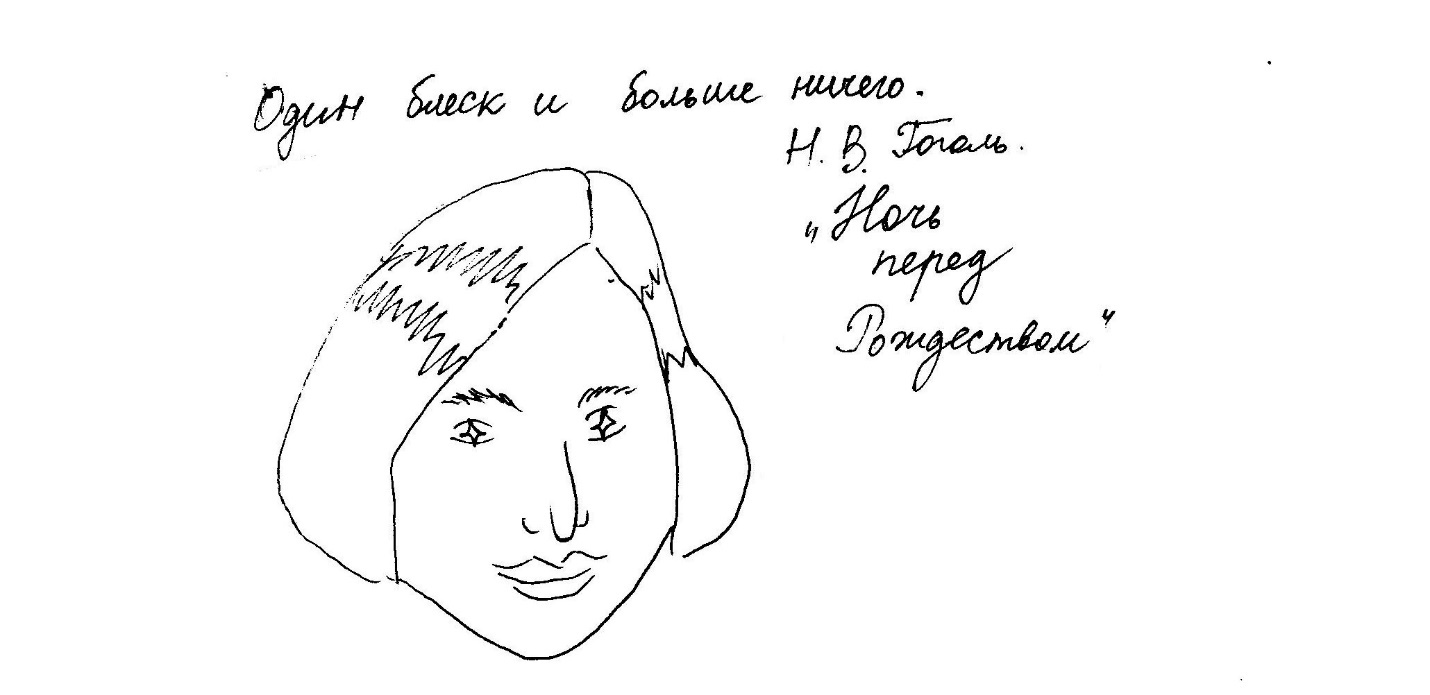 Один блеск и больше ничего.
Н. В. Гоголь.
„Ночь
перед
Рождеством"